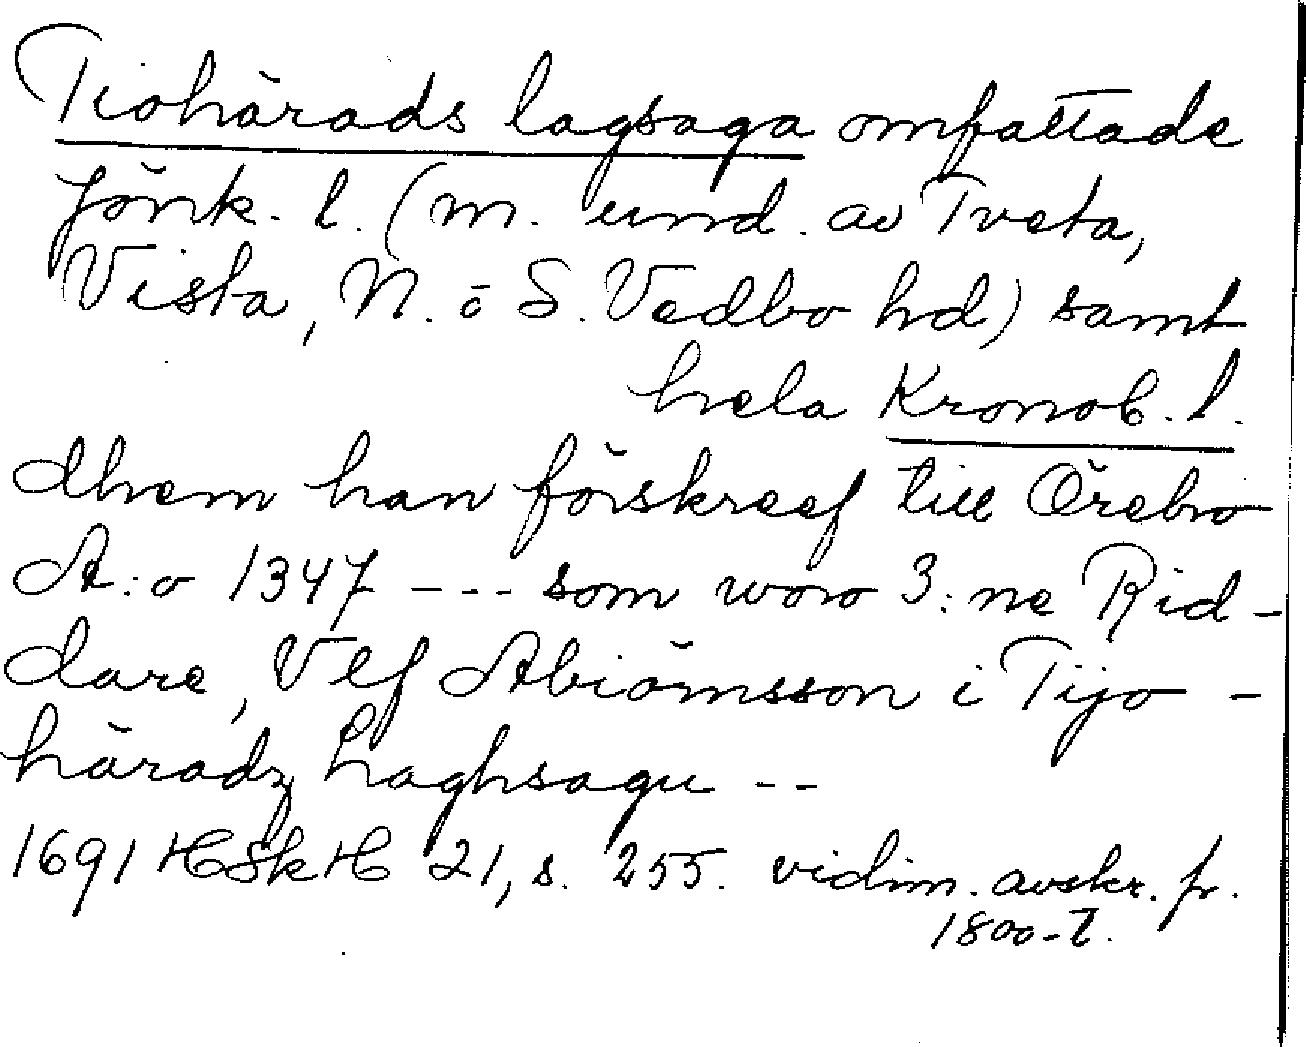 Tiohärads lagsaga omfattade
Jönk. l. (m. und. av Tveta,
Vista, N. o S. Vedbo hd) samt
hela Kronob. l.
dhem han förskreef till Örebro
A:o 1347 --- som woro 3:ne Rid-
dare, Vlf Abiörnsson i Tijo-
häradz Laghsagu --
1691 HSkH 21, s. 255. vidim. avskr. fr.
1800-t.